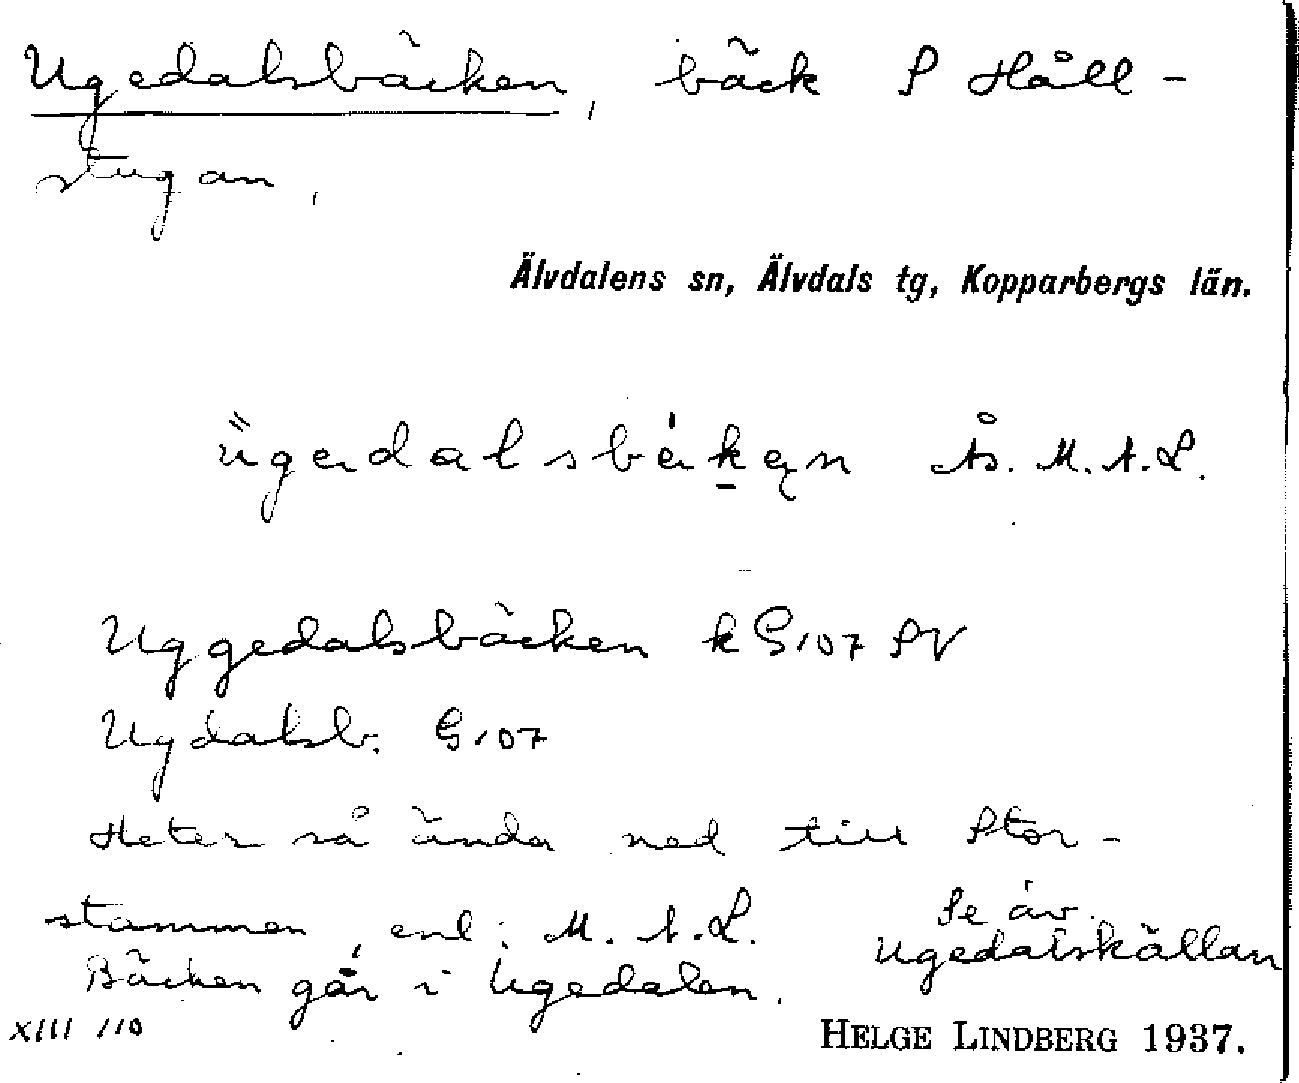 Ugedalsbäcken, bäck S Håll-
stugan,
Älvdalens sn, Älvdals tg, Kopparbergs län.
Ås. M. A. L.
Uggedalsbäcken k G 107 SV
Ugdalsb. G 107
Heter så ända ned till Stor-
stammen, enl. M. A. L.
Se äv.
Ugedalskällan
Bäcken går i Ugedalen.
XIII 110
HELGE LINDBERG 1937.